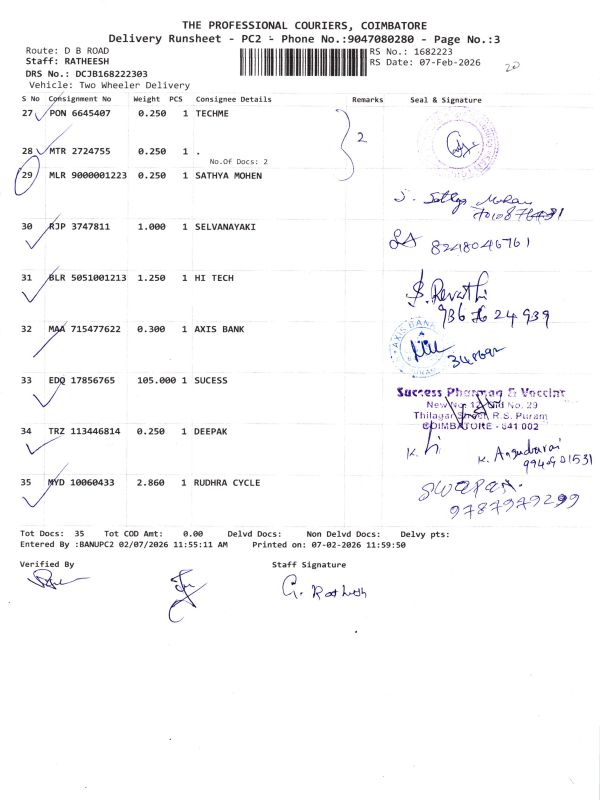 THE PROFESSIONAL COURIERS, COIMBATORE
Delivery Runsheet - PC2 - Phone No.:9047080280 - Page No.:3
Route: D B ROAD
RS No.: 1682223
Staff: RATHEESH
RS Date: 07-Feb-2026
20
DRS No.: DCJB168222303
Vehicle: Two Wheeler Delivery
S No Consignment No Weight PCS Consignee Details Remarks Seal & Signature
27 PON 6645407 0.250 1 TECHME
2
28 MTR 2724755 0.250 1 .
No.Of Docs: 2
29 MLR 9000001223 0.250 1 SATHYA MOHEN
S. Sathya Mohan
30 RJP 3747811 1.000 1 SELVANAYAKI
8248046761
31 BLR 5051001213 1.250 1 HI TECH
S. Revathi
936 26 24 939
32 MAA 715477622 0.300 1 AXIS BANK
AXIS BANK
33 EDQ 17856765 105.000 1 SUCESS
Success Pharmaq & Vaccint
New No. 12, Old No. 29
Thilagar Street, R.S. Puram
COIMBATORE - 641 002
34 TRZ 113446814 0.250 1 DEEPAK
35 MYD 10060433 2.860 1 RUDHRA CYCLE
9787979299
Tot Docs: 35 Tot COD Amt: 0.00 Delvd Docs: Non Delvd Docs: Delvy pts:
Entered By :BANUPC2 02/07/2026 11:55:11 AM Printed on: 07-02-2026 11:59:50
Verified By
Staff Signature
G. Ratheesh